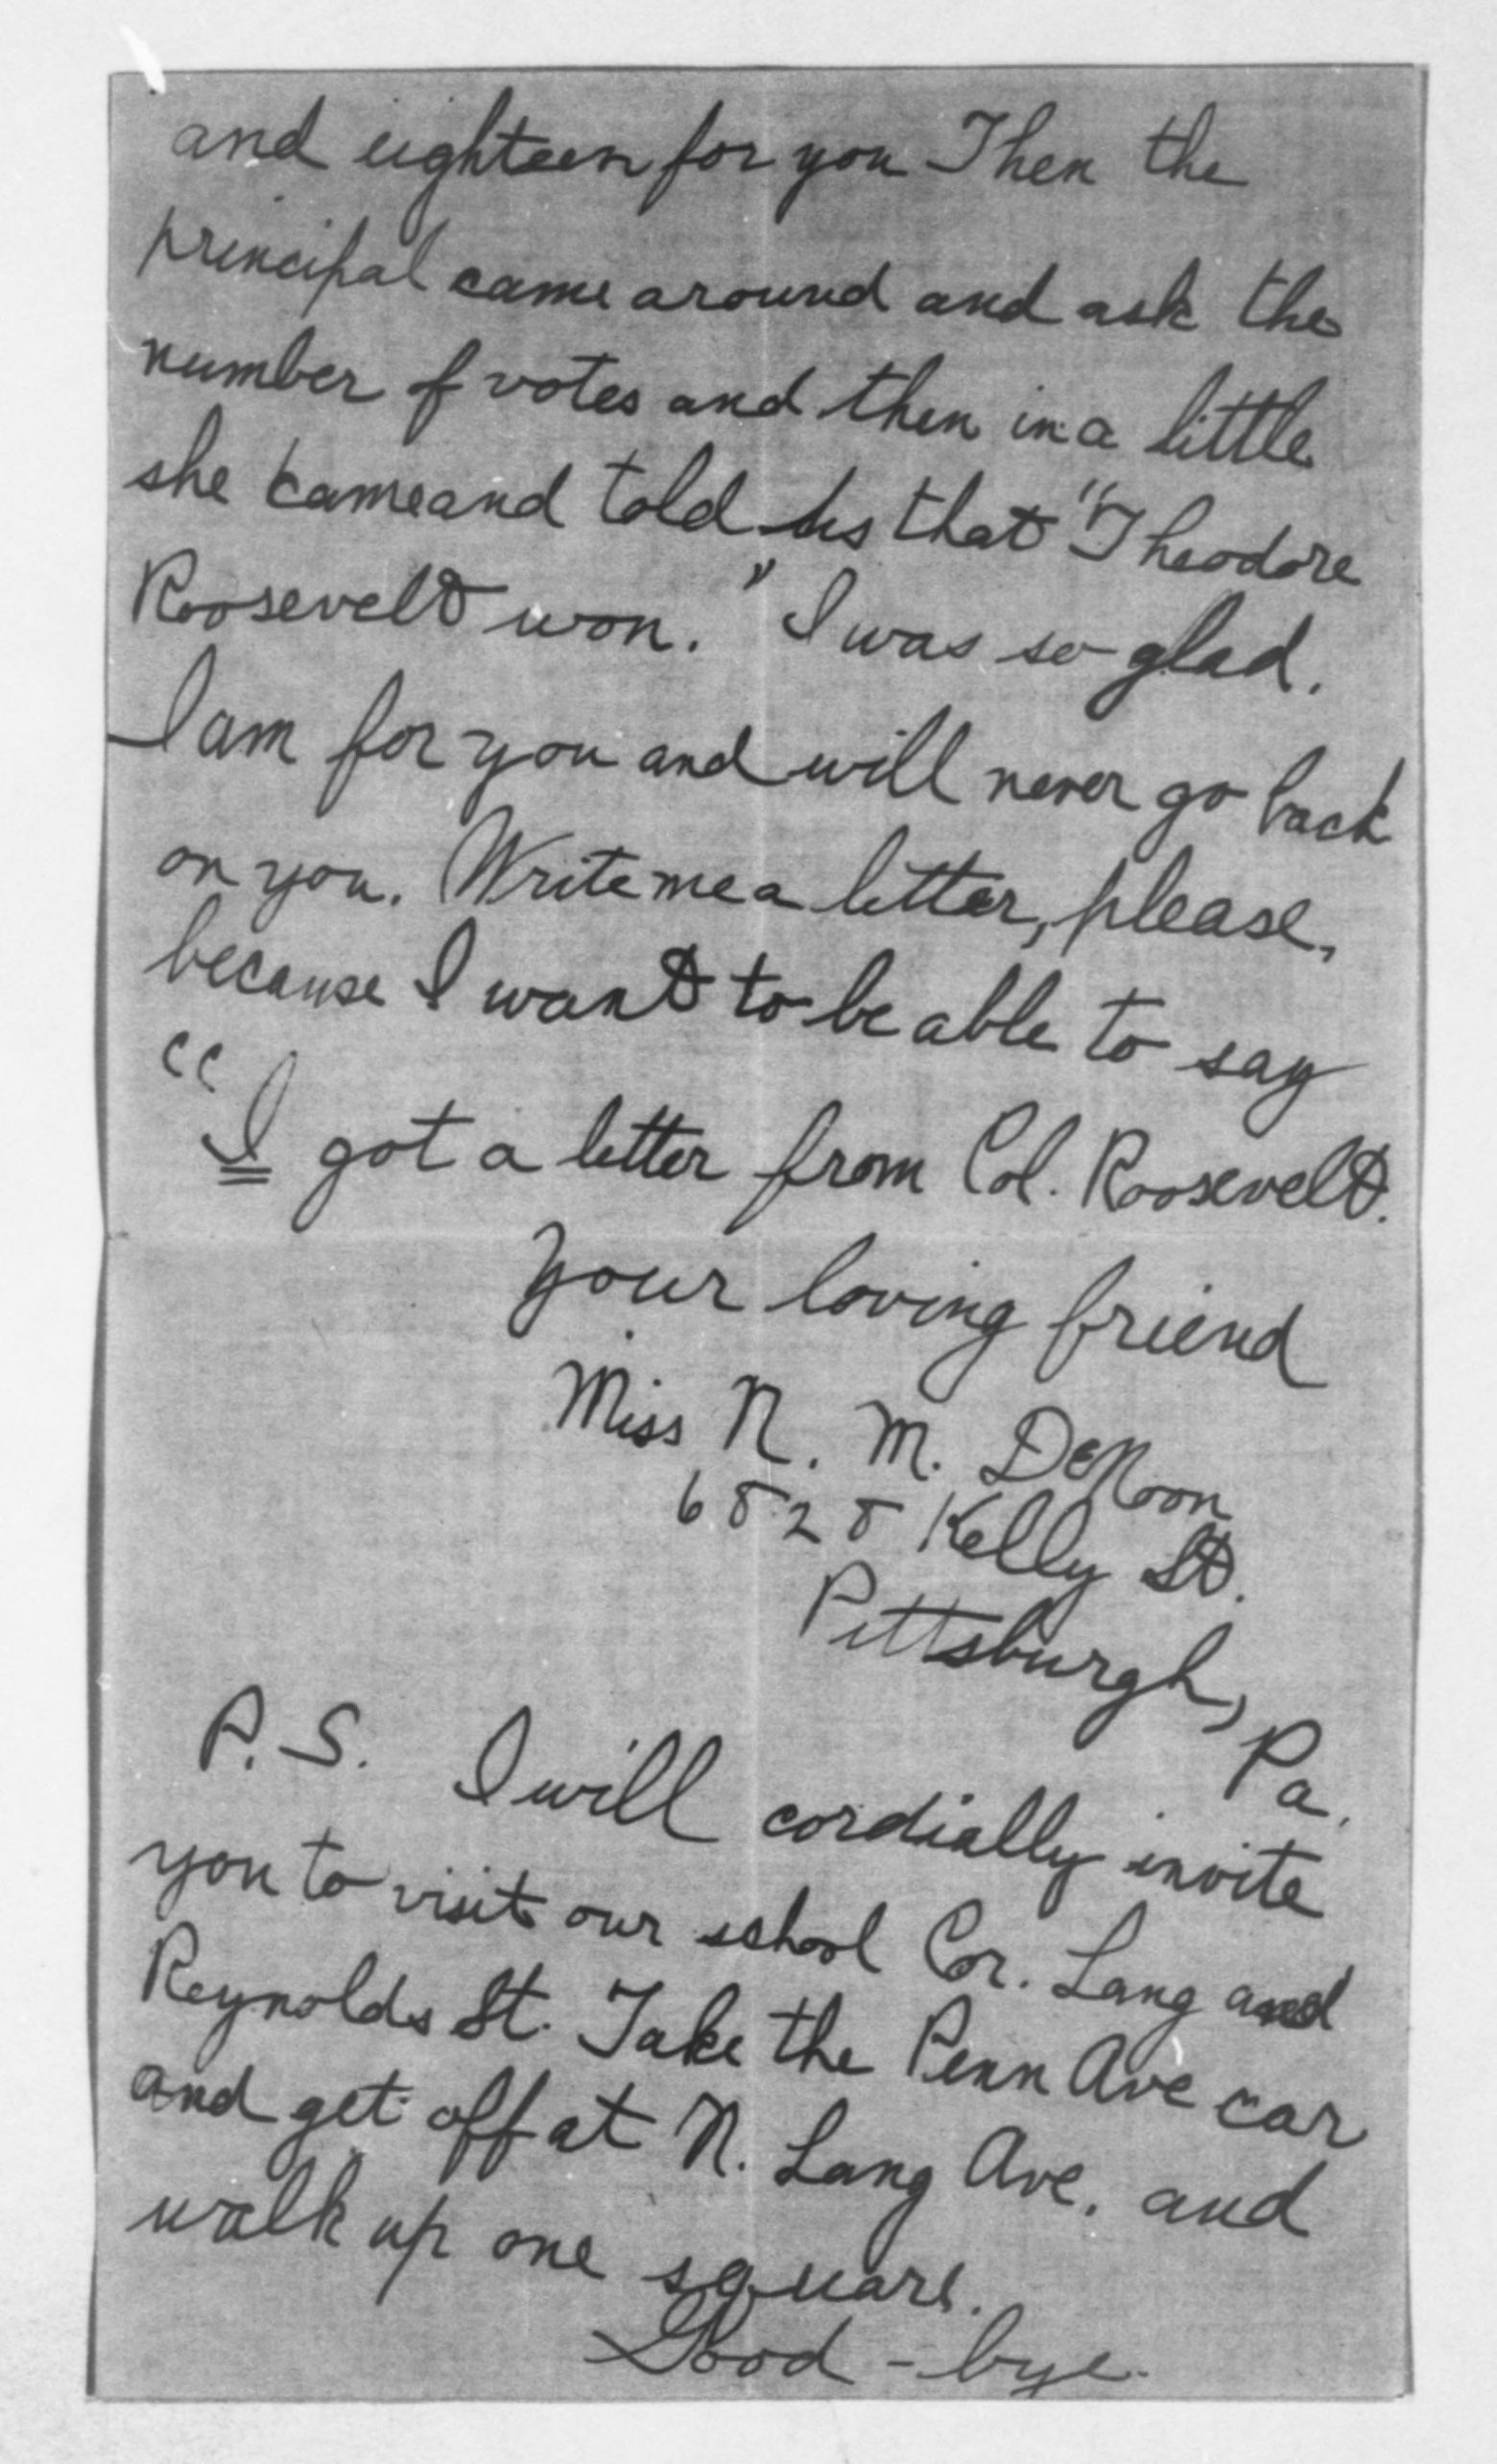 and eighteen for you Then the
principal came around and ask the
number of votes and then in a little
she came and told us that "Theodore
Roosevelt won." I was so glad.
I am for you and will never go back
on you. Write me a letter, please,
because I want to be able to say
"I got a letter from Col. Roosevelt.
Your loving friend
Miss N. M. DeNoon
6828 Kelly St.
Pittsburgh, Pa.
P.S. I will cordially invite
you to visit our school Cor. Lang and
Reynolds St. Take the Penn Ave car
and get off at N. Lang Ave. and
walk up one square.
Good-bye.